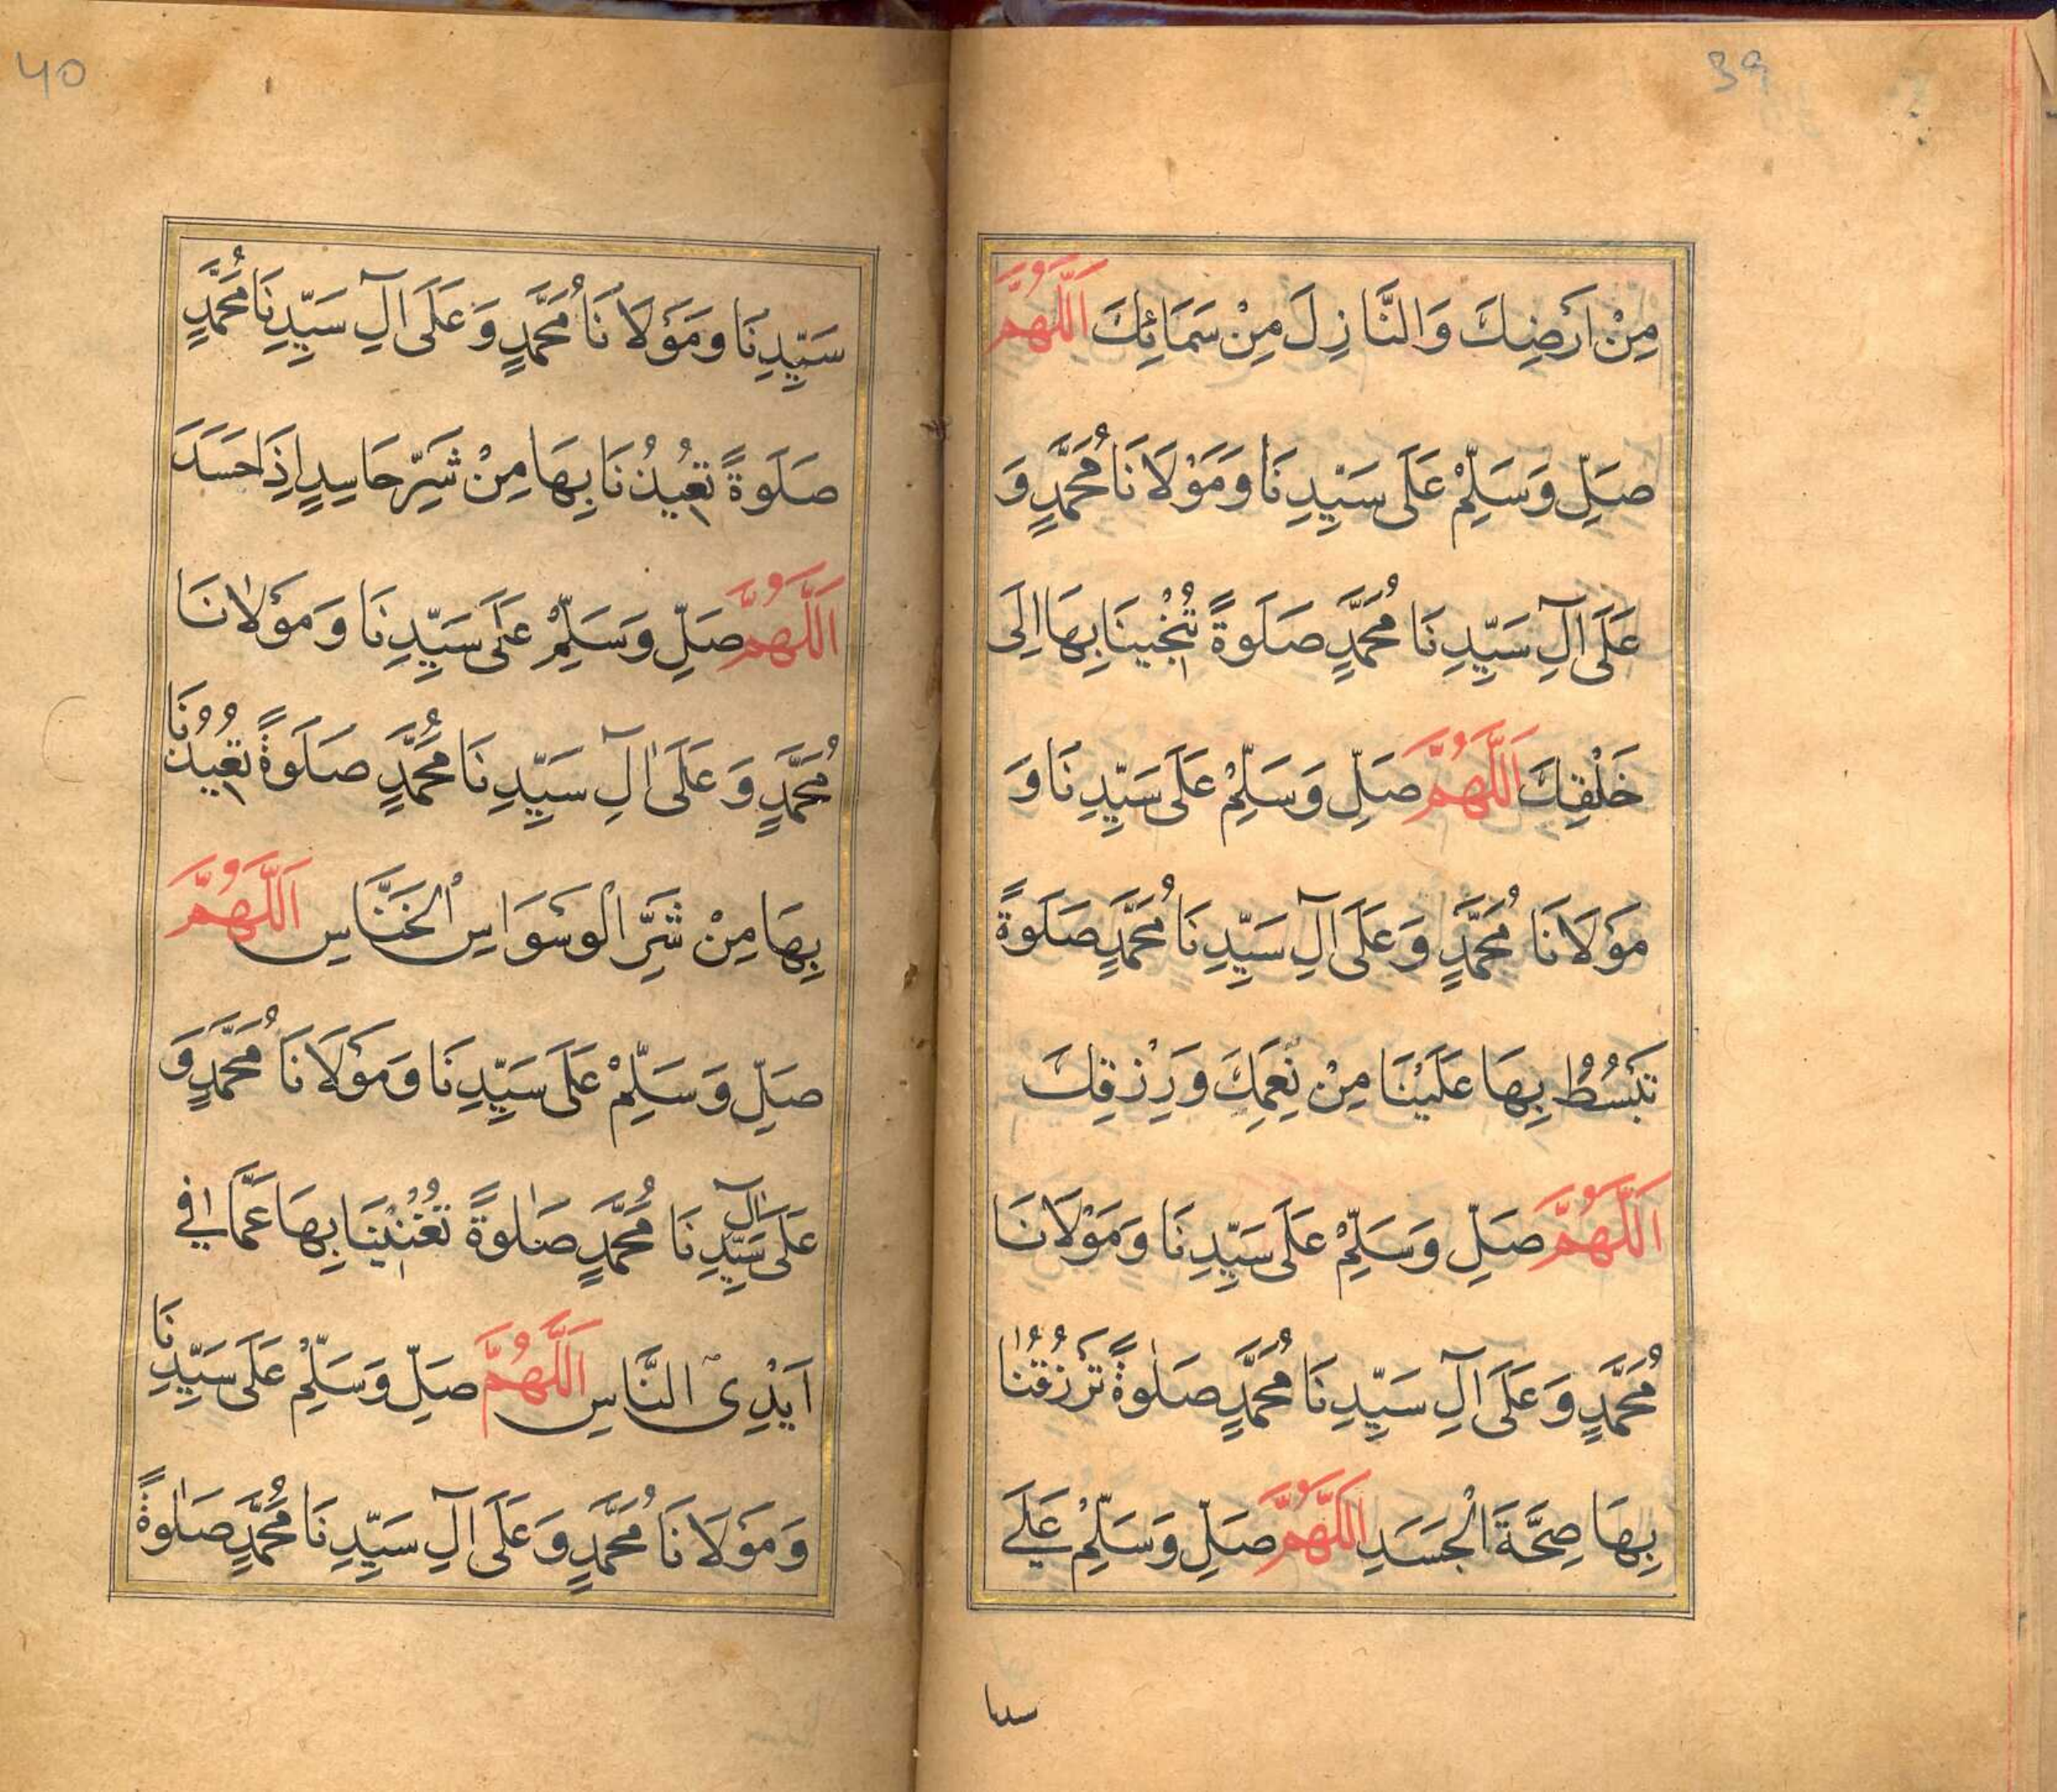 39
مِنْ اَرَضِكَ وَالنَّازِلَ مِنْ سَمَائِكَ اَللّٰهُمَّ
صَلِّ وَسَلِّمْ عَلَى سَيِّدِنَا وَمَوْلَانَا مُحَمَّدٍ وَ
عَلَى اٰلِ سَيِّدِنَا مُحَمَّدٍ صَلَوةً تُنْجِينَا بِهَا اِلَى
خَلْقِكَ اَللّٰهُمَّ صَلِّ وَسَلِّمْ عَلَى سَيِّدِنَا وَ
مَوْلَانَا مُحَمَّدٍ وَعَلَى اٰلِ سَيِّدِنَا مُحَمَّدٍ صَلَوةً
تَبْسُطُ بِهَا عَلَيْنَا مِنْ نِعَمِكَ وَرِزْقِكَ
اَللّٰهُمَّ صَلِّ وَسَلِّمْ عَلَى سَيِّدِنَا وَمَوْلَانَا
مُحَمَّدٍ وَعَلَى اٰلِ سَيِّدِنَا مُحَمَّدٍ صَلٰوةً تَرْزُقُنَا
بِهَا صِحَّةَ الْجَسَدِ اَللّٰهُمَّ صَلِّ وَسَلِّمْ عَلٰے
سدںا
40
سَيِّدِنَا وَمَوْلَانَا مُحَمَّدٍ وَعَلَى اٰلِ سَيِّدِنَا مُحَمَّدٍ
صَلَوةً تُعِيذُنَا بِهَا مِنْ شَرِّ حَاسِدٍ اِذَا حَسَدَ
اَللّٰهُمَّ صَلِّ وَسَلِّمْ عَلَى سَيِّدِنَا وَمَوْلَانَا
مُحَمَّدٍ وَعَلَى اٰلِ سَيِّدِنَا مُحَمَّدٍ صَلَوةً تُعِيذُنَا
بِهَا مِنْ شَرِّ الْوَسْوَاسِ الْخَنَّاسِ اَللّٰهُمَّ
صَلِّ وَسَلِّمْ عَلَى سَيِّدِنَا وَمَوْلَانَا مُحَمَّدٍ وَ
عَلَى اٰلِ سَيِّدِنَا مُحَمَّدٍ صَلٰوةً تُغْنِيْنَا بِهَا عَمَّا فِي
اَيْدِى النَّاسِ اَللّٰهُمَّ صَلِّ وَسَلِّمْ عَلَى سَيِّدِنَا
وَمَوْلَانَا مُحَمَّدٍ وَعَلَى اٰلِ سَيِّدِنَا مُحَمَّدٍ صَلٰوةً